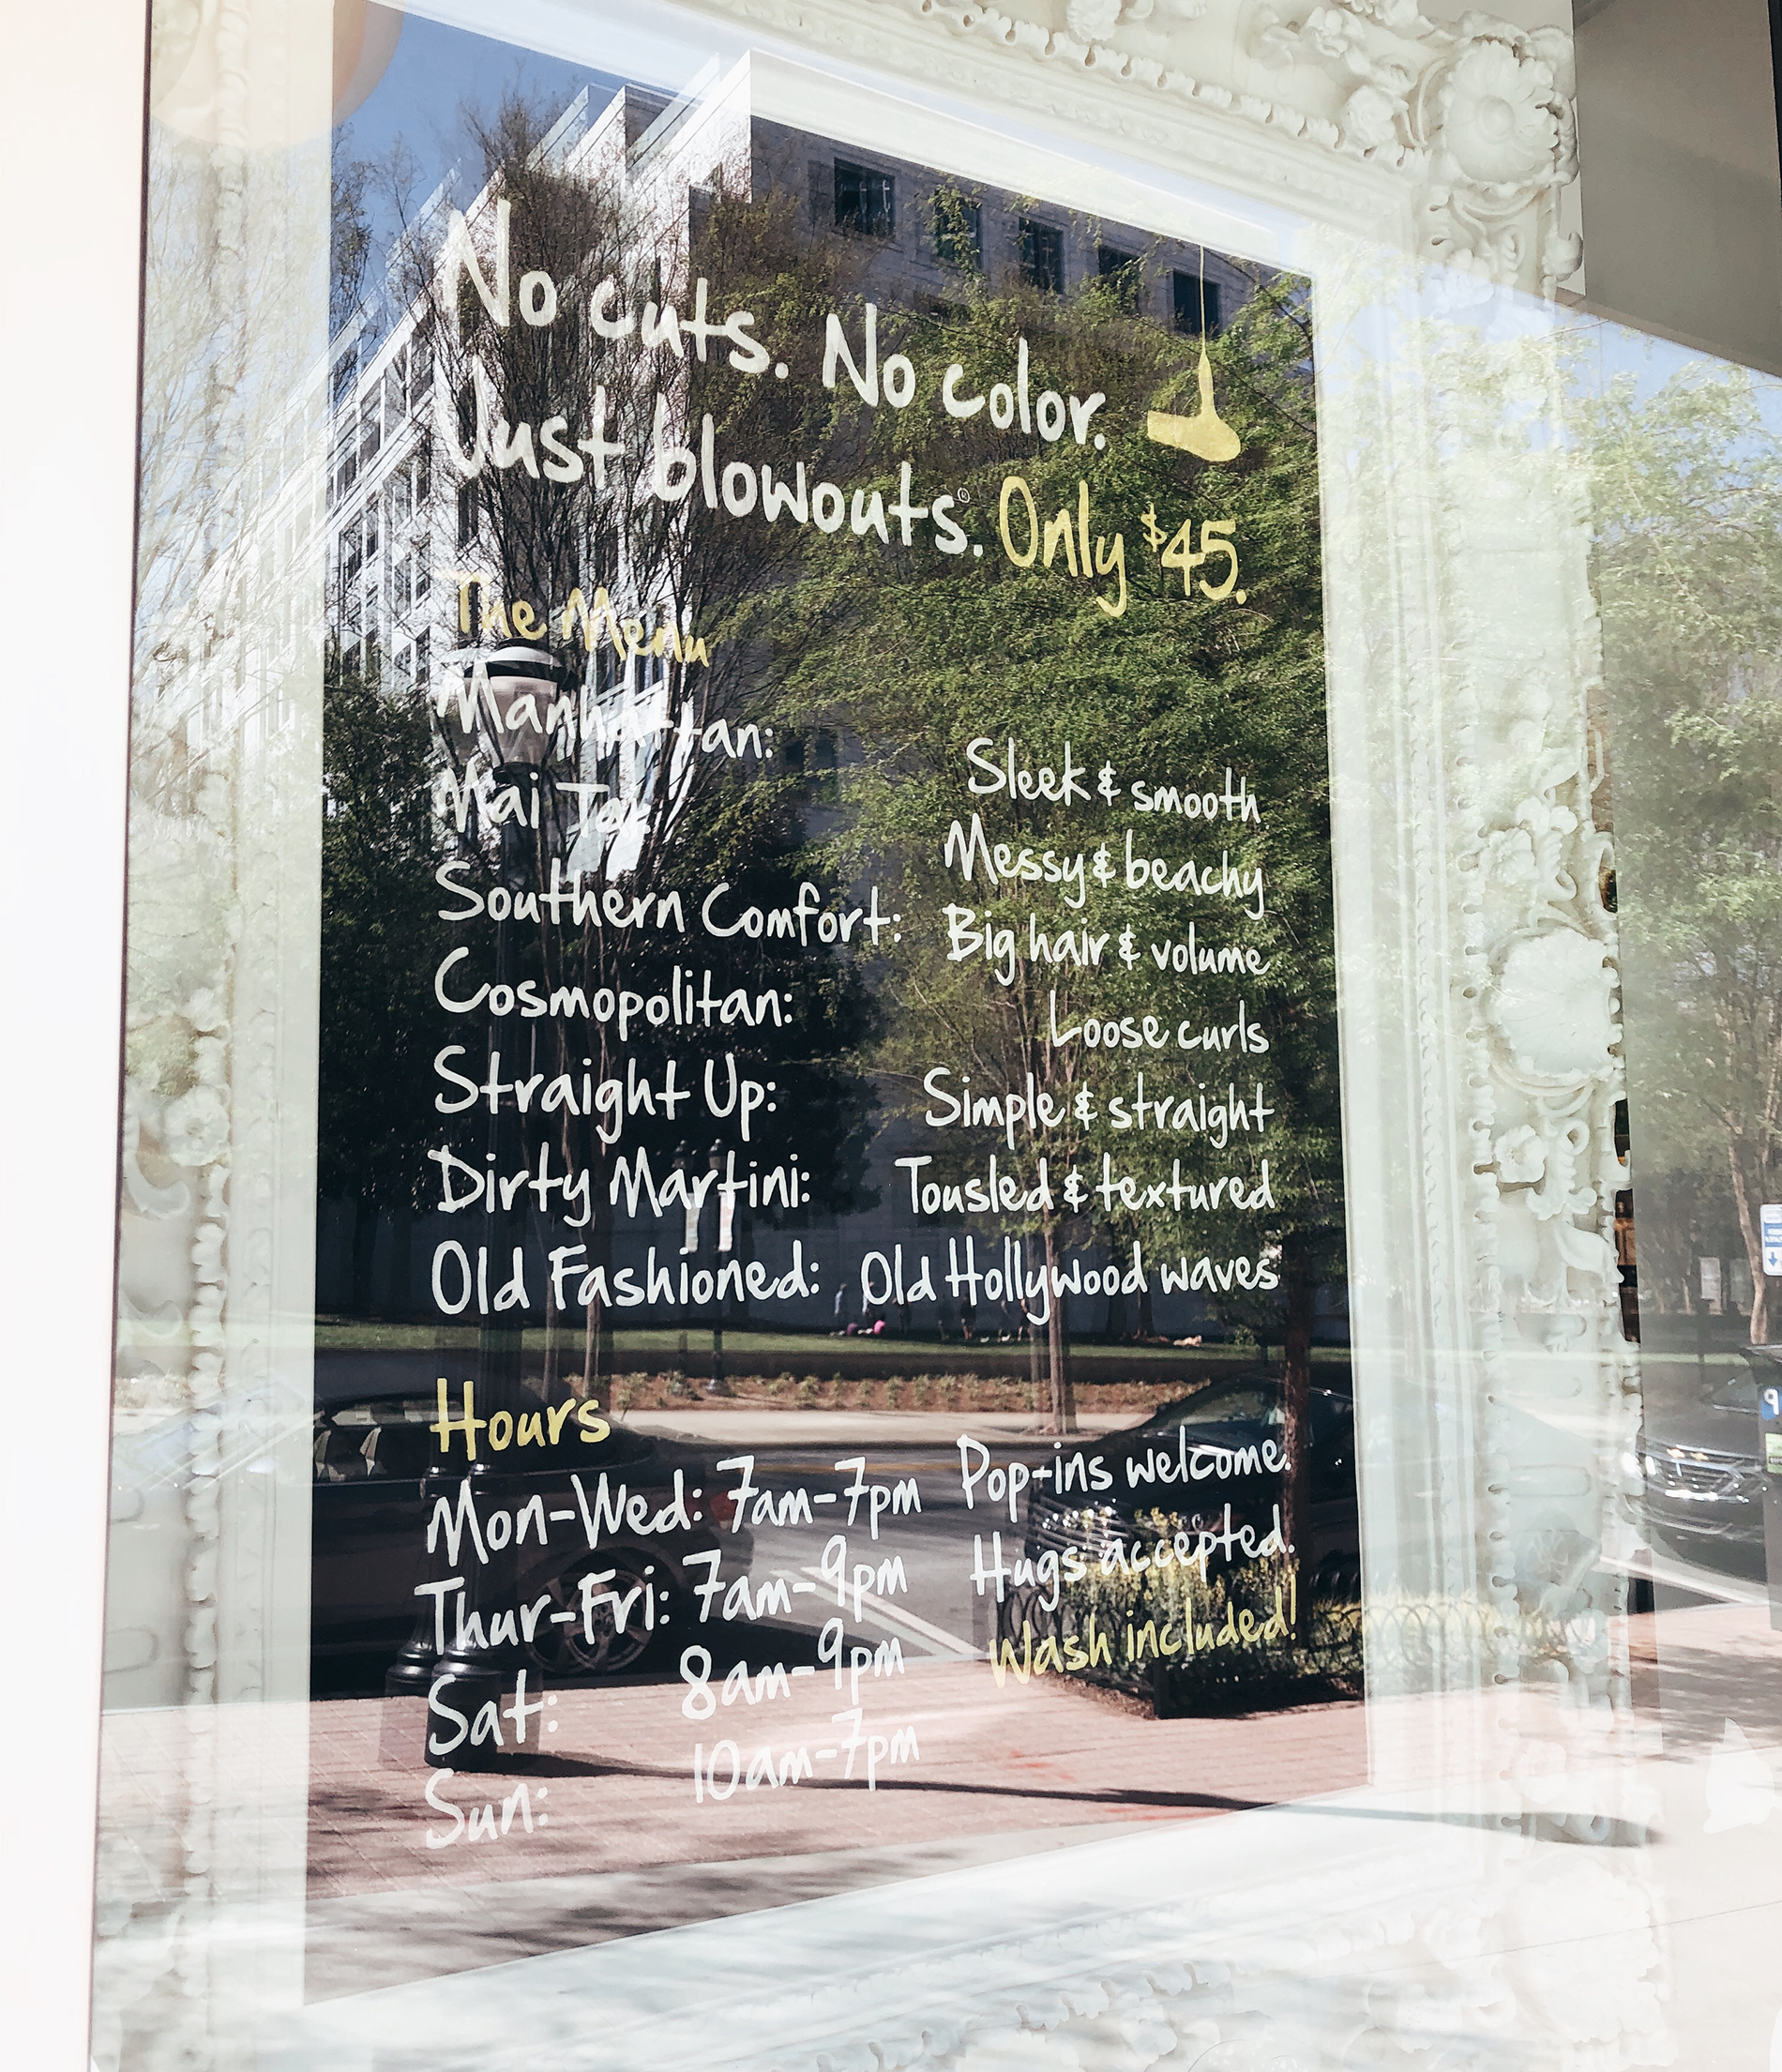 No cuts. No color.
Just blowouts.© Only $45.
The Menu
Manhattan: Sleek & smooth
Mai Tai: Messy & beachy
Southern Comfort: Big hair & volume
Cosmopolitan: Loose curls
Straight Up: Simple & straight
Dirty Martini: Tousled & textured
Old Fashioned: Old Hollywood waves
Hours
Mon-Wed: 7am-7pm
Thur-Fri: 7am-9pm
Sat: 8am-9pm
Sun: 10am-7pm
Pop-ins welcome.
Hugs accepted.
Wash included!